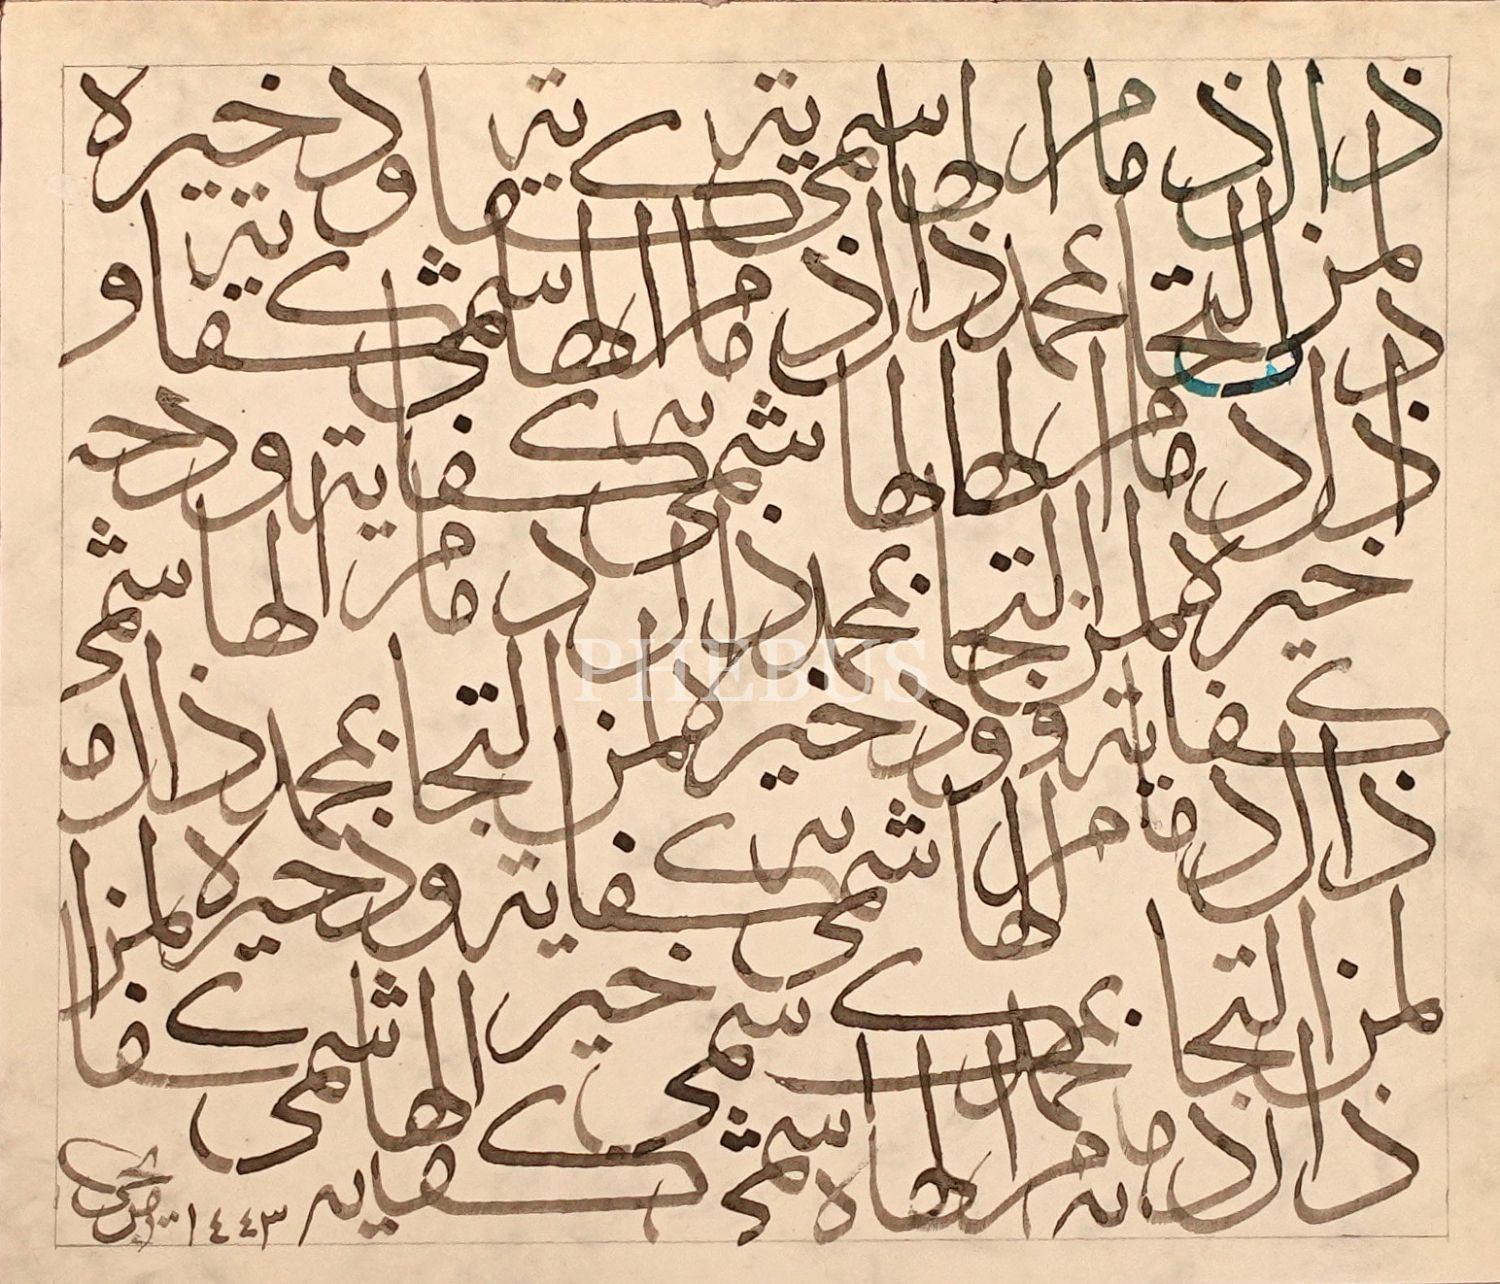 ذا الذمام الهاسمى كفاية وذخيره
لمن التجا بمحمد ذا الذمام الهاشمى كفاية و
ذا الدمام الها الهاشمى كفاية ودحه
خيره لمن التجا بمحمد ذا الدمام الهاشمى
كفاية وود خيره لمن التجا بمحمد ذا ال
ذا الدمام الهاشمى كفاية وذخيره لمن ا
لمن التجا بمحمد سمى خير الهاشمى كفا
ذا الذمام الها شمى كفايه ١٤٤٣
PHEBUS